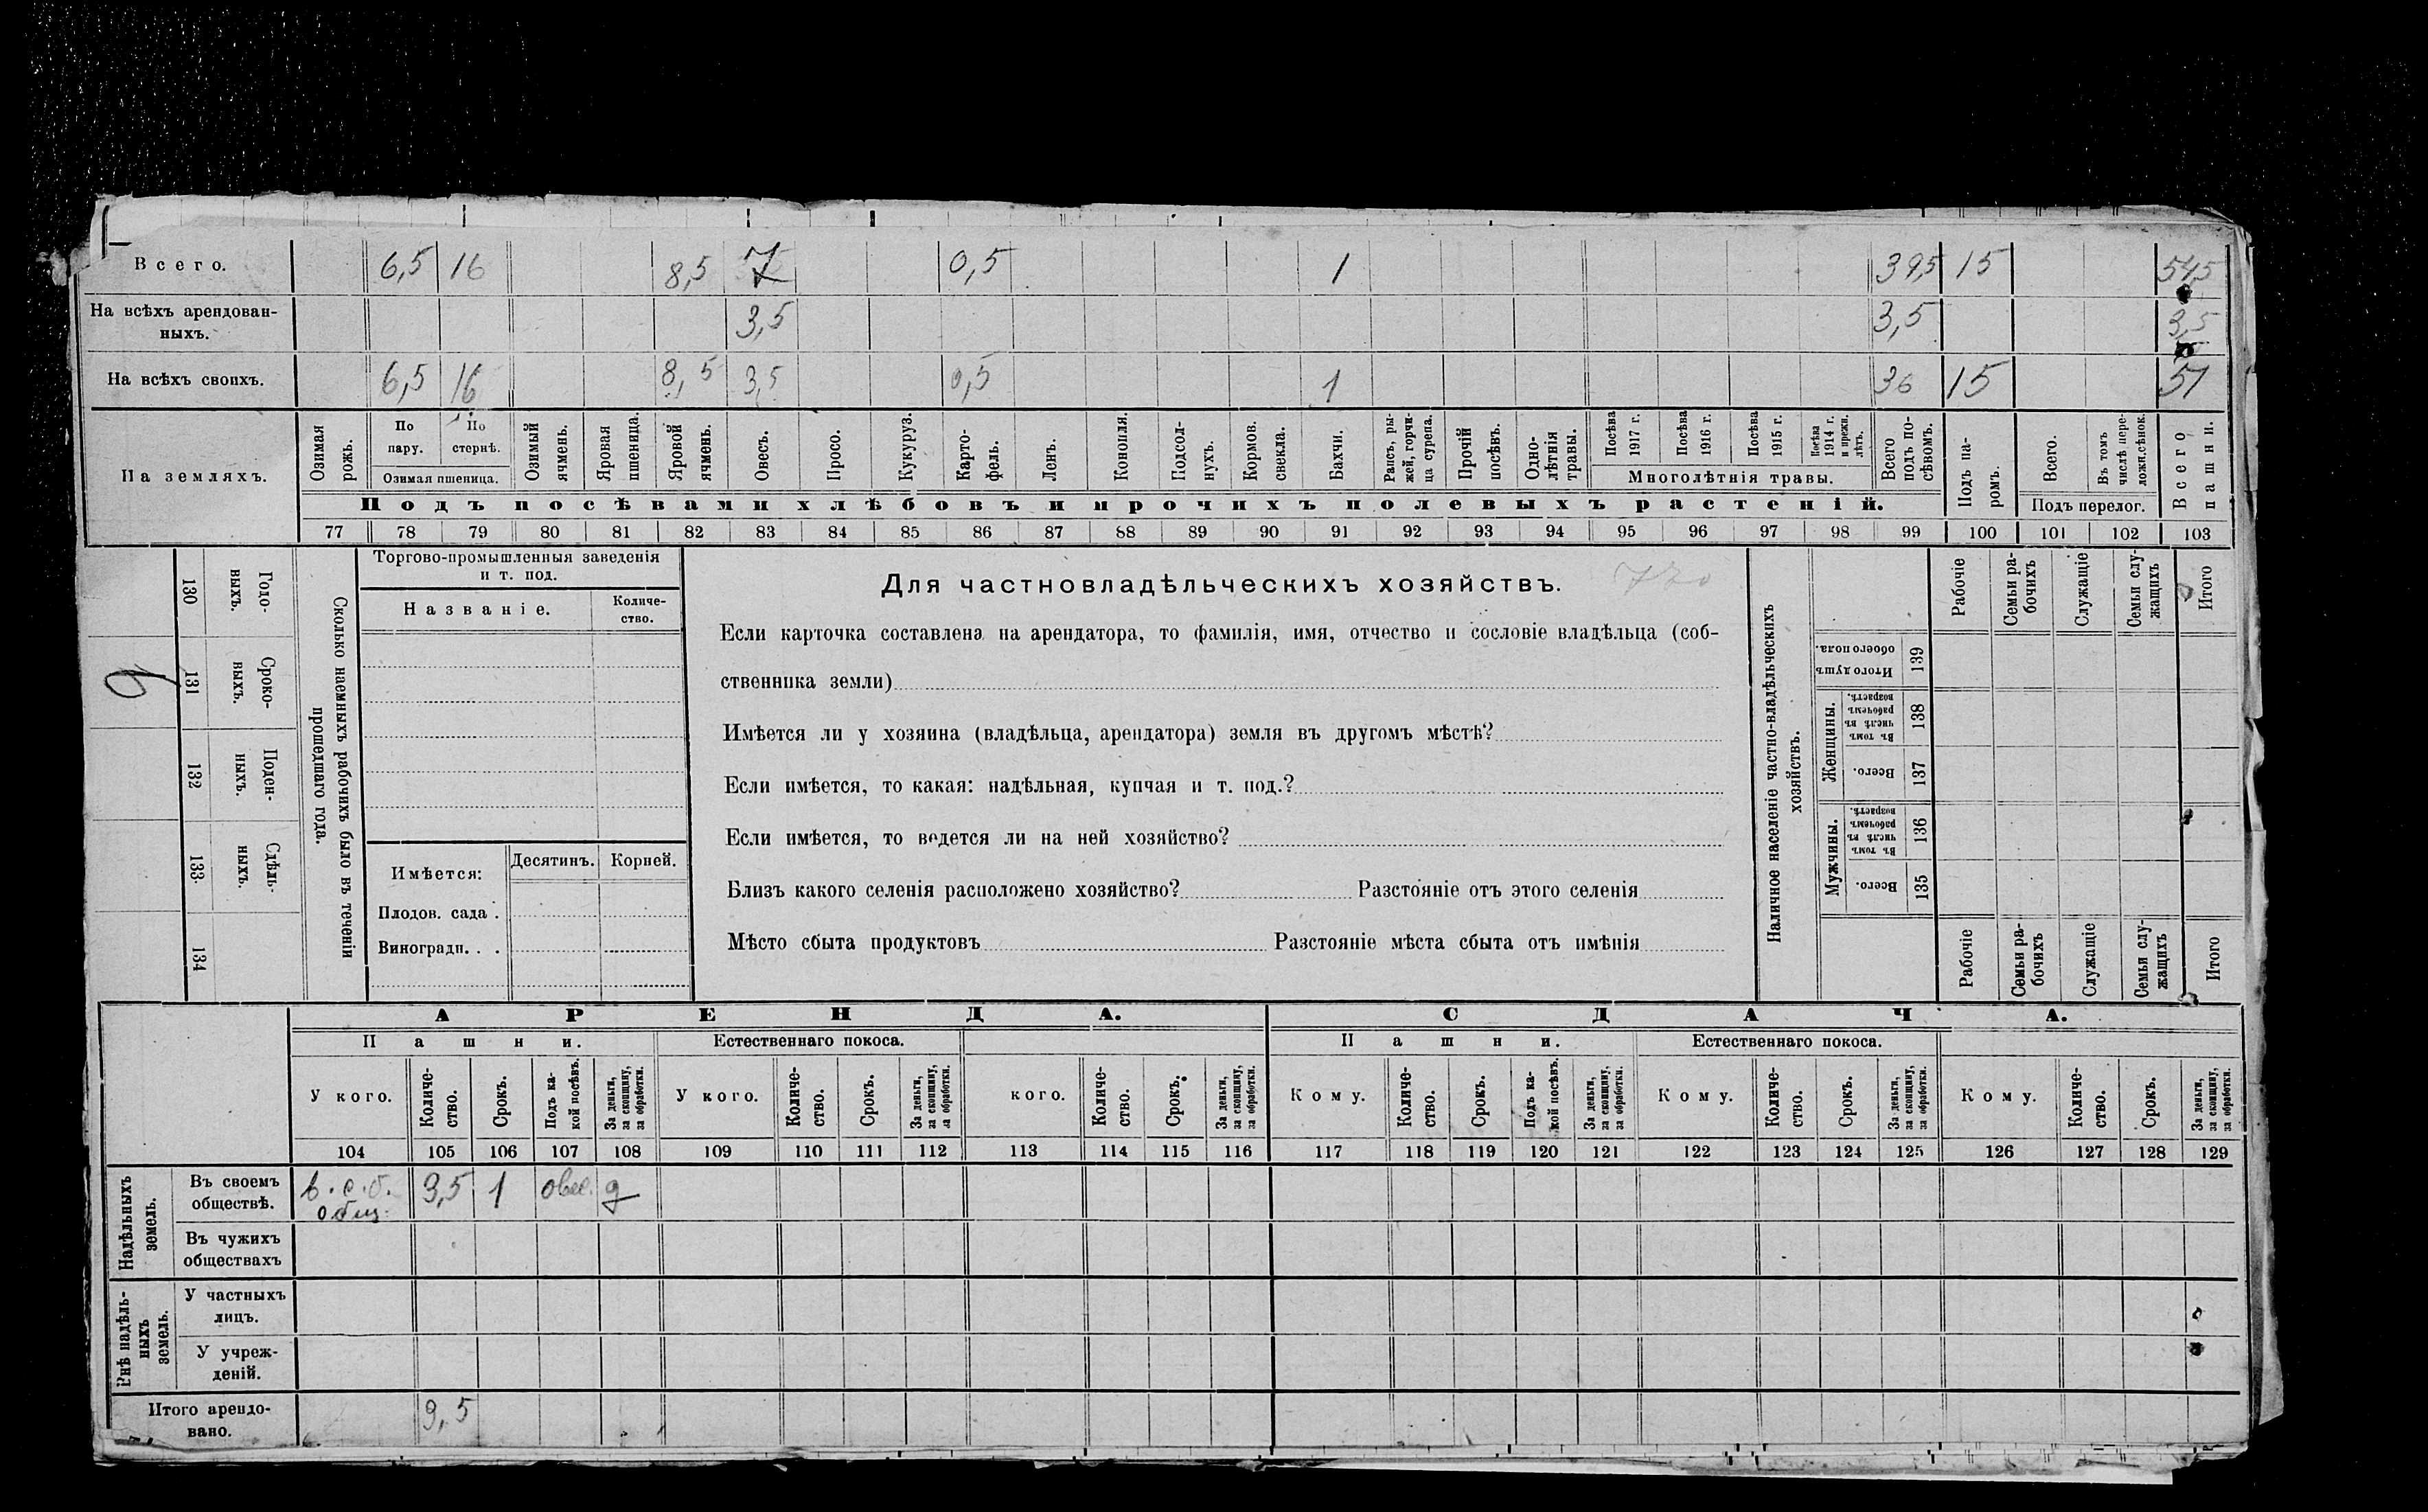 Всего. 6,5 16 8,5 7 0,5 1 39,5 15 54,5
На всѣхъ арендован-
ныхъ. 3,5 3,5 3,5
На всѣхъ своихъ. 6,5 16 8,5 3,5 0,5 1 36 15 51
На земляхъ.
Озимая рожь.
По пару.
По стернѣ.
Озимая пшеница.
Озимый ячмень.
Яровая пшеница.
Яровой ячмень.
Овесъ.
Просо.
Кукуруз.
Карто-
фель.
Ленъ.
Конопля.
Подсол-
нухъ.
Кормов.
свекла.
Бахчи.
Рапсъ, ры-
жей, горчи-
ца сурепа.
Прочій
посѣвъ.
Одно-
лѣтнія
травы.
Посѣва
1917 г.
Посѣва
1916 г.
Посѣва
1915 г.
Посѣва
1914 г.
и прежн.
лѣтъ.
Многолѣтнія травы.
Всего
подъ по-
сѣвомъ.
Подъ па-
ромъ.
Всего.
Въ томъ
числѣ пере-
ложн.сѣнок.
Подъ перелог.
Всего
пашни.
Подъ посѣвами хлѣбовъ и прочихъ полевыхъ растеній.
77 78 79 80 81 82 83 84 85 86 87 88 89 90 91 92 93 94 95 96 97 98 99 100 101 102 103
130 Годо-
ныхъ.
131 Сроко-
выхъ.
132 Поден-
ныхъ.
133. Сдѣль-
ныхъ.
134
9
Сколько наемныхъ рабочихъ было въ теченіи
прошедшаго года.
Торгово-промышленныя заведенія
и т. под.
Названіе.
Количе-
ство.
Имѣется:
Десятинъ.
Корней.
Плодов. сада .
Виноградн. . .
Для частновладѣльческихъ хозяйствъ.
Если карточка составлена на арендатора, то фамилія, имя, отчество и сословіе владѣльца (соб-
ственника земли)
Имѣется ли у хозяина (владѣльца, арендатора) земля въ другомъ мѣстѣ?
Если имѣется, то какая: надѣльная, купчая и т. под.?
Если имѣется, то ведется ли на ней хозяйство?
Близъ какого селенія расположено хозяйство? Разстояніе отъ этого селенія
Мѣсто сбыта продуктовъ Разстояніе мѣста сбыта отъ имѣнія
Наличное населеніе частно-владѣльческихъ
хозяйствъ.
Рабочіе
Семьи ра-
бочихъ
Служащіе
Семьи слу-
жащихъ
Итого
Итого душъ
обоего пола.
139
Женщины.
Въ томъ
числѣ въ
рабочемъ
возрастѣ.
138
Всего.
137
Мужчины.
Въ томъ
числѣ въ
рабочемъ
возрастѣ.
136
Всего.
135
Рабочіе
Семьи ра-
бочихъ
Служащіе
Семьи слу-
жащихъ
Итого
АРЕНДА.
СДАЧА.
Пашни.
Естественнаго покоса.
Пашни.
Естественнаго покоса.
У кого.
Количе-
ство.
Срокъ.
Подъ ка-
кой посѣвъ.
За деньги,
за скопщину,
за обработки.
У кого.
Количе-
ство.
Срокъ.
За деньги,
за скопщину,
за обработки.
кого.
Количе-
ство.
Срокъ.
За деньги,
за скопщину,
за обработки.
Кому.
Количе-
ство.
Срокъ.
Подъ ка-
кой посѣвъ.
За деньги,
за скопщину,
за обработки.
Кому.
Количе-
ство.
Срокъ.
За деньги,
за скопщину,
за обработки.
Кому.
Количе-
ство.
Срокъ.
За деньги,
за скопщину,
за обработки.
104 105 106 107 108 109 110 111 112 113 114 115 116 117 118 119 120 121 122 123 124 125 126 127 128 129
Надѣльныхъ
земель.
Въ своемъ
обществѣ.
в. с. б.
общ.
3,5 1 овес. д
Въ чужихъ
обществахъ
Внѣ надѣль-
ныхъ
земель.
У частныхъ
лицъ.
У учреж-
деній.
Итого арендо-
вано. 3,5